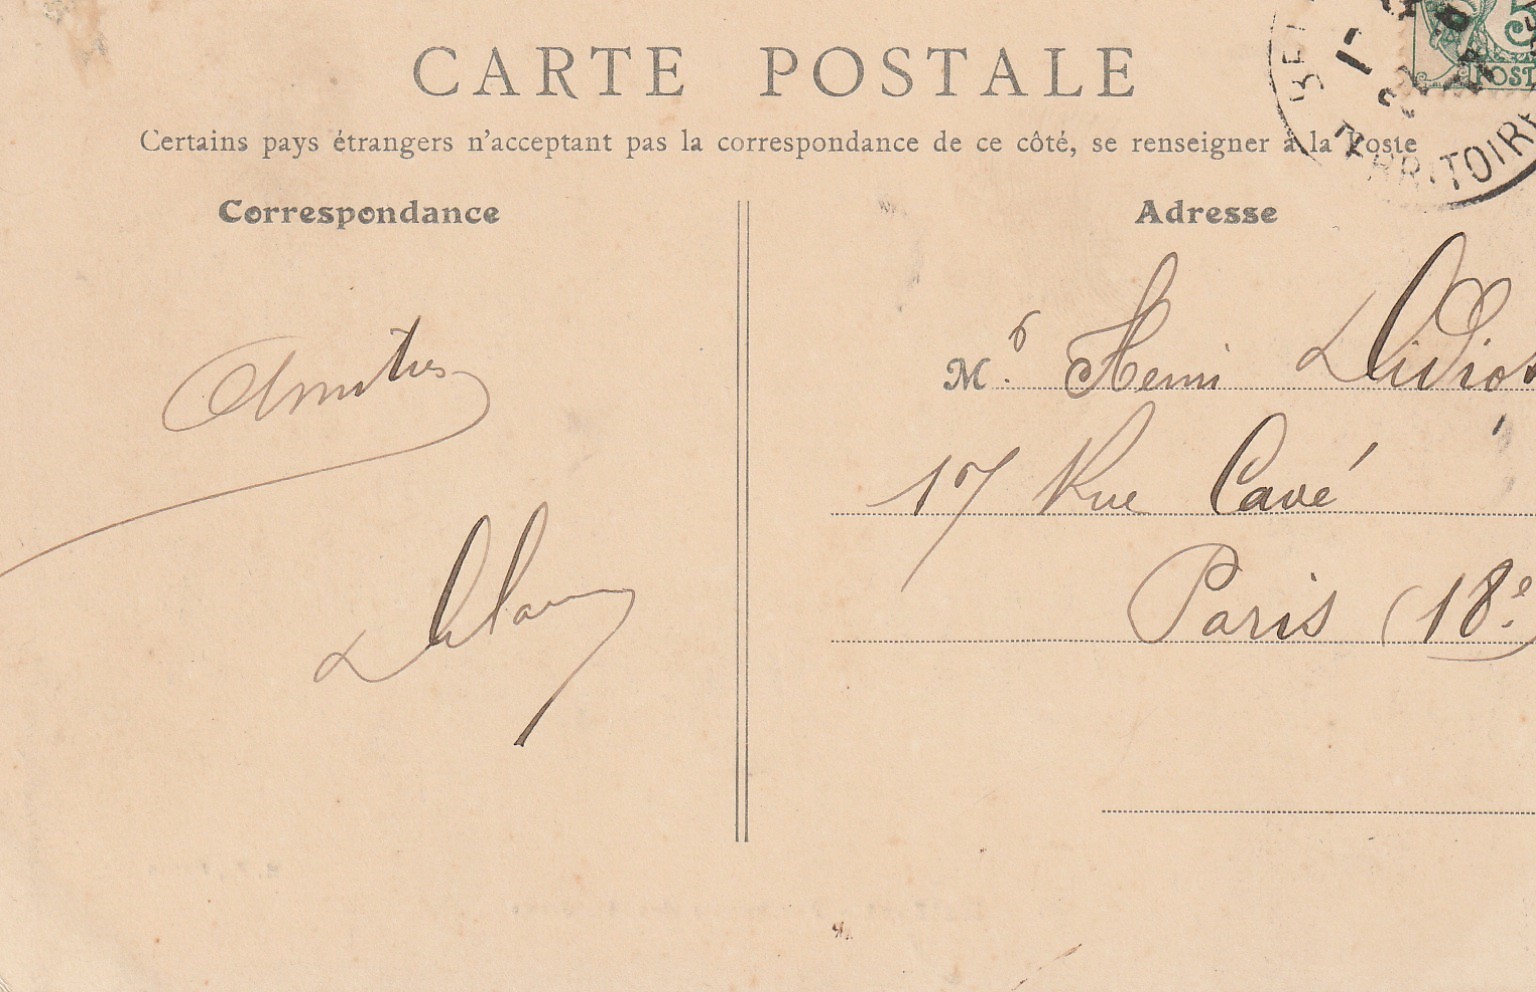 CARTE POSTALE
Certains pays étrangers n'acceptant pas la correspondance de ce côté, se renseigner à la Poste
Correspondance
Adresse
BEL
TERRITOIRE
5
POST
Amitiés
M.r Henri Didiot
17 Rue Cavé
Paris (18e